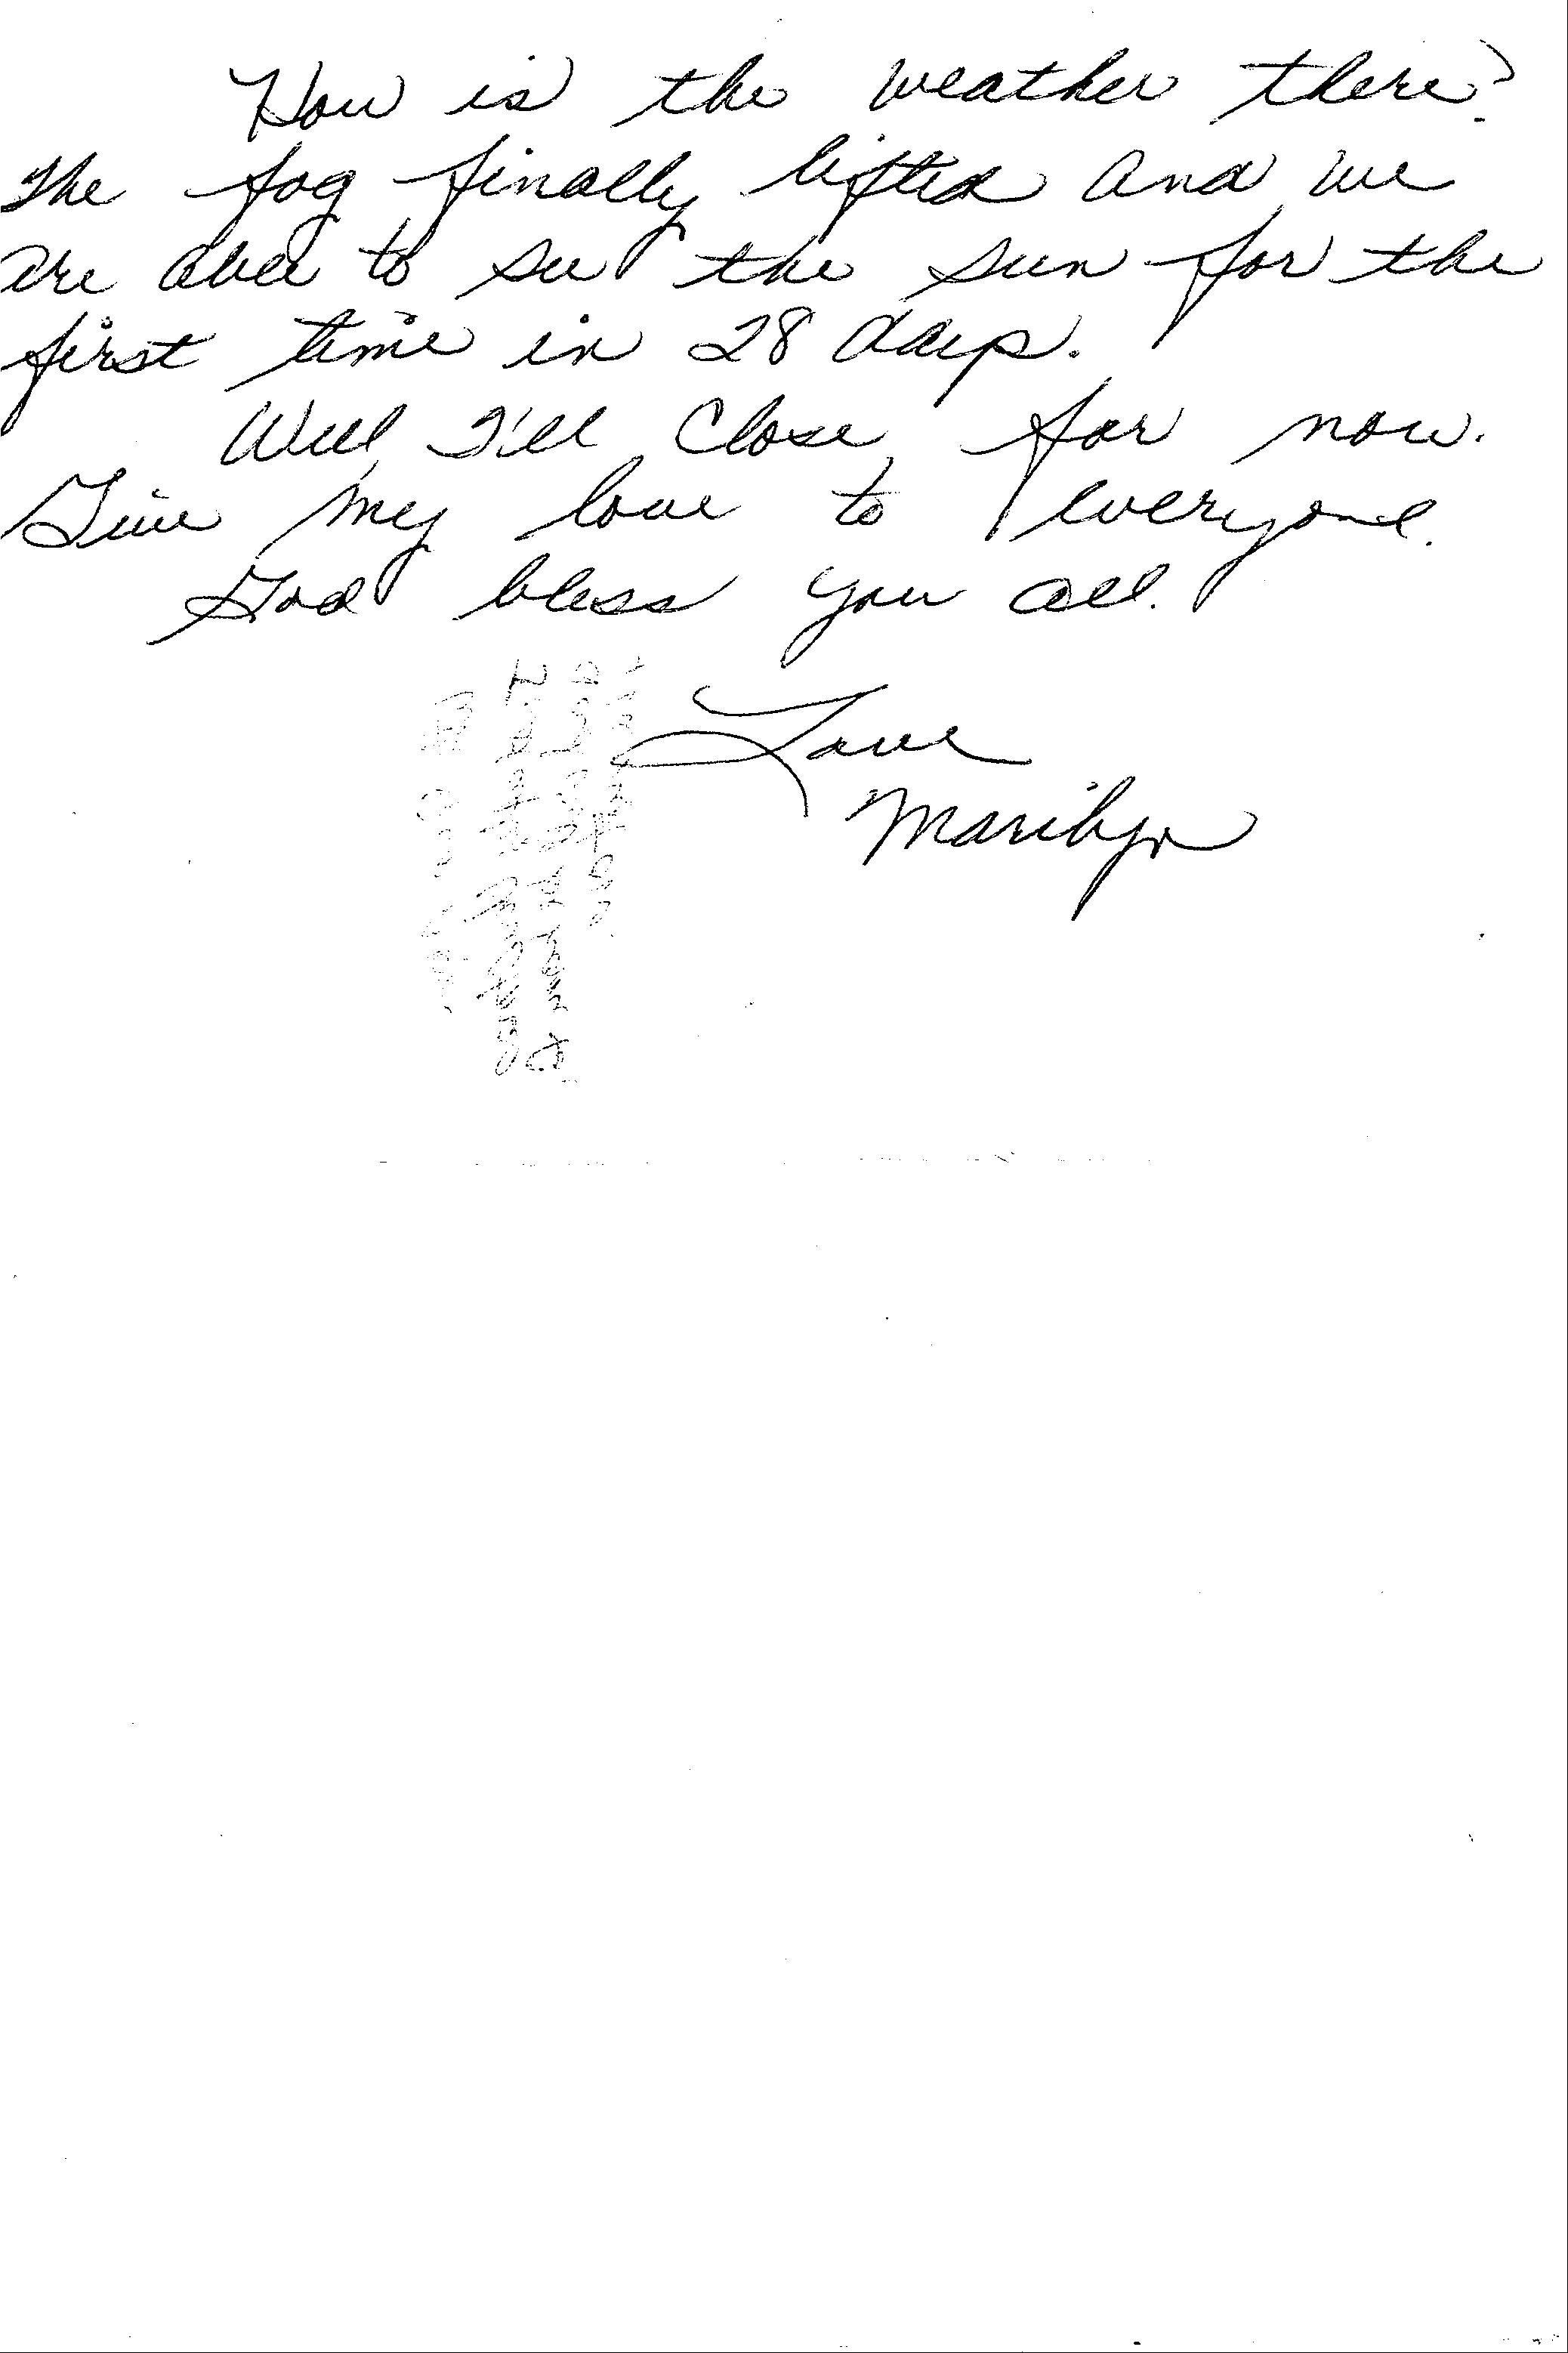 How is the weather there?
The fog finally lifted and we
are able to see the sun for the
first time in 28 days.
Well, I'll close for now.
Give my love to everyone.
God bless you all.
Love
Marilyn